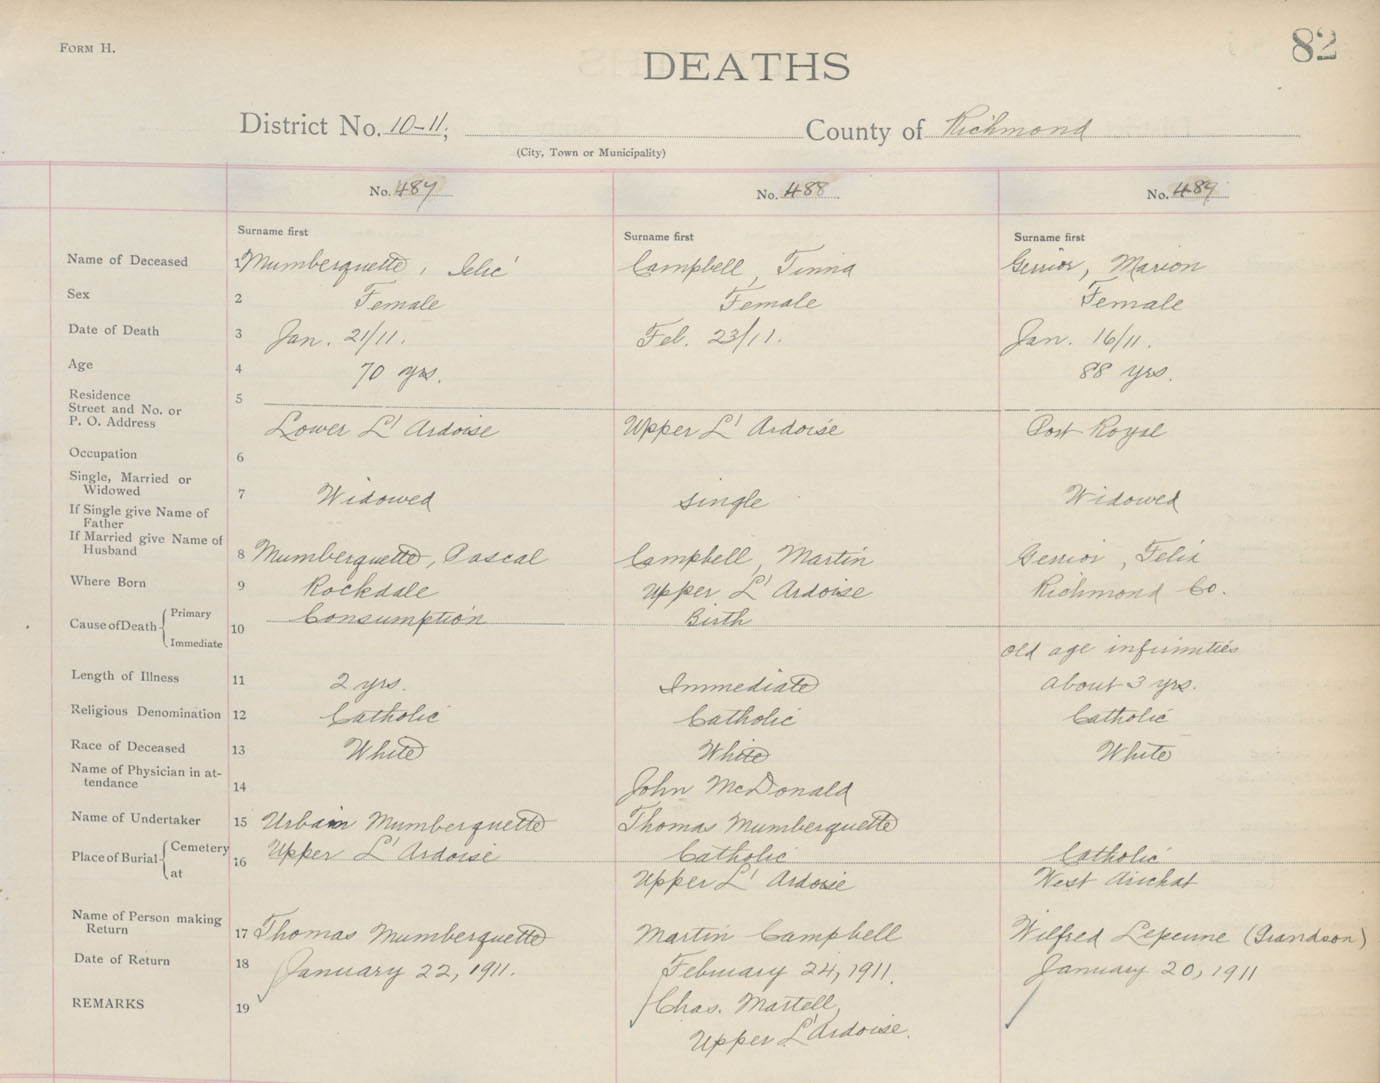 FORM H.
82
DEATHS
District No. 10-11; County of Richmond
(City, Town or Municipality)
No. 487 No. 488 No. 489
Surname first Surname first Surname first
Name of Deceased 1 Mumberquette, Campbell, Tinna Gerrior, Marion
Sex 2 Female Female Female
Date of Death 3 Jan. 21/11. Feb. 23/11. Jan. 16/11.
Age 4 70 yrs. 88 yrs.
Residence 5
Street and No. or
P. O. Address Lower L'Ardoise Upper L'Ardoise Port Royal
Occupation 6
Single, Married or
Widowed 7 Widowed single Widowed
If Single give Name of
Father
If Married give Name of
Husband 8 Mumberquette, Pascal Campbell, Martin Gerrior, Felix
Where Born 9 Rockdale Upper L'Ardoise Richmond Co.
Cause of Death Primary Consumption Birth
10
Immediate old age infirmities
Length of Illness 11 2 yrs. Immediate about 3 yrs.
Religious Denomination 12 Catholic Catholic Catholic
Race of Deceased 13 White White White
Name of Physician in at-
tendance 14 John McDonald
Name of Undertaker 15 Urbain Mumberquette Thomas Mumberquette
Place of Burial Cemetery 16 Upper L'Ardoise Catholic Catholic
at Upper L'Ardoise West Arichat
Name of Person making
Return 17 Thomas Mumberquette Martin Campbell Wilfred Lejeune (Grandson)
Date of Return 18 January 22, 1911. February 24, 1911. January 20, 1911
REMARKS 19 Chas. Martell,
Upper L'Ardoise.